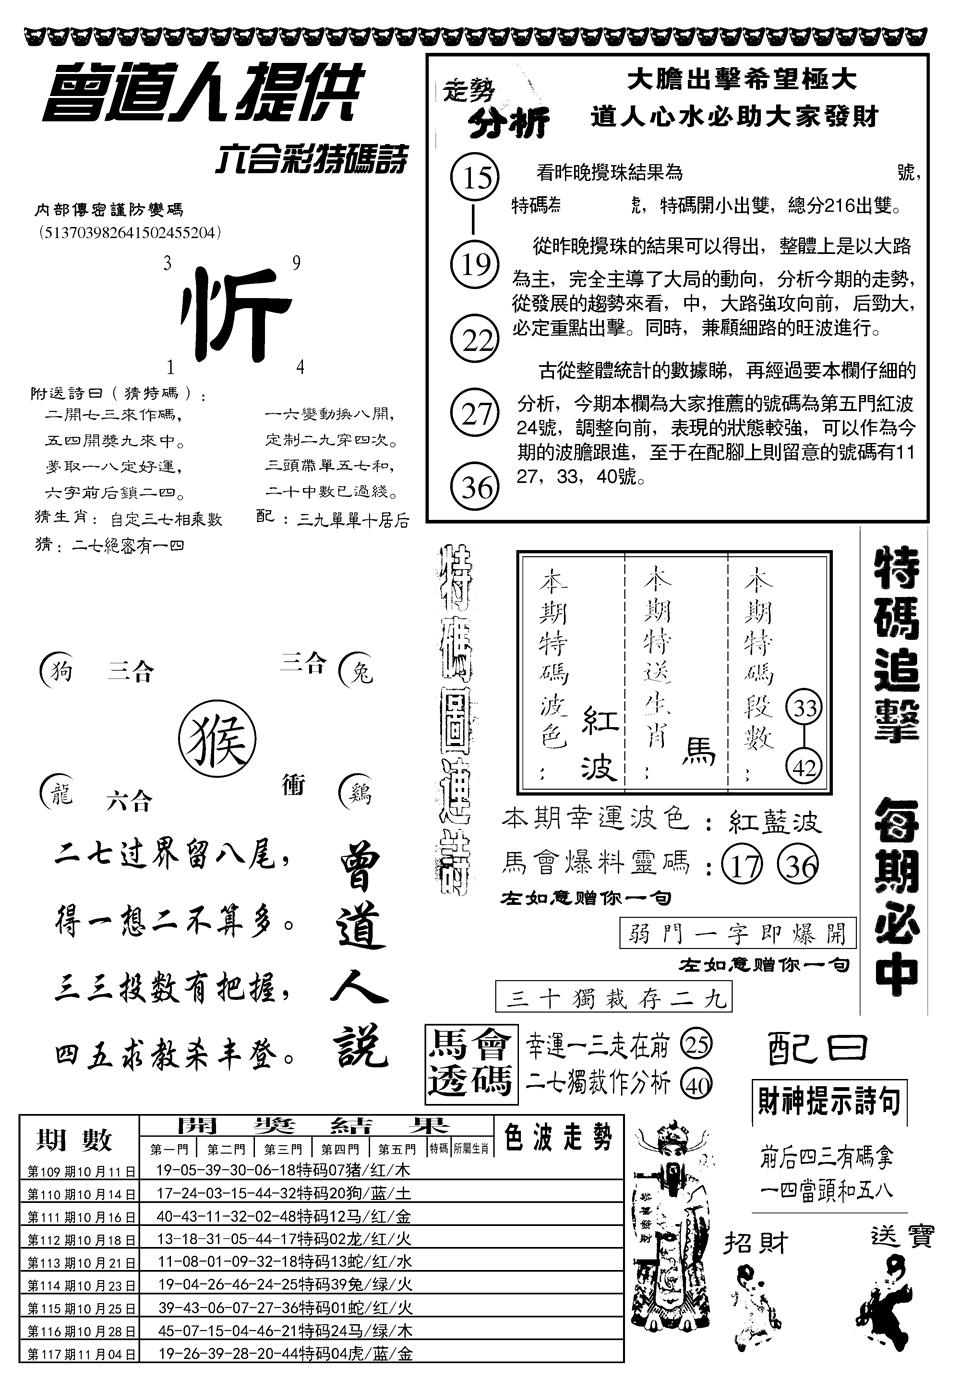 曾道人提供
六合彩特碼詩
内部傳密謹防變碼
(513703982641502455204)
3 9
忻
1 4
附送詩曰(猜特碼):
二開七三來作碼, 一六變動換八開,
五四開獎九來中。 定制二九穿四次。
夢取一八定好運, 三頭帶單五七和,
六字前后鎖二四。 二十中數已過綫。
猜生肖:自定三七相乘數 配:三九單單十居后
猜:二七絕密有一四
走勢
分析
大膽出擊希望極大
道人心水必助大家發財
15
19
22
27
36
看昨晚攪珠結果為 號,
特碼為 號,特碼開小出雙,總分216出雙。
從昨晚攪珠的結果可以得出,整體上是以大路
為主,完全主導了大局的動向,分析今期的走勢,
從發展的趨勢來看,中,大路強攻向前,后勁大,
必定重點出擊。同時,兼顧細路的旺波進行。
古從整體統計的數據睇,再經過要本欄仔細的
分析,今期本欄為大家推薦的號碼為第五門紅波
24號,調整向前,表現的狀態較強,可以作為今
期的波膽跟進,至于在配腳上則留意的號碼有11
27,33,40號。
狗 三合 三合 兔
猴
龍 六合 衝 鷄
二七过界留八尾,
得一想二不算多。
三三投数有把握,
四五求教杀丰登。
曾道人説
特碼圖連詩
本期特碼波色: 紅波
本期特送生肖: 馬
本期特碼段數: 33 42
本期幸運波色:紅藍波
馬會爆料靈碼:17 36
左如意赠你一句
弱門一字即爆開
左如意赠你一句
三十獨裁存二九
特碼追擊 每期必中
馬會透碼
幸運一三走在前 25
二七獨裁作分析 40
配曰
財神提示詩句
前后四三有碼拿
一四當頭和五八
招財
送寶
期數 開獎結果 色波走勢
第一門 第二門 第三門 第四門 第五門 特碼 所屬生肖
第109期10月11日 19-05-39-30-06-18特码07猪/红/木
第110期10月14日 17-24-03-15-44-32特码20狗/蓝/土
第111期10月16日 40-43-11-32-02-48特码12马/红/金
第112期10月18日 13-18-31-05-44-17特码02龙/红/火
第113期10月21日 11-08-01-09-32-18特码13蛇/红/水
第114期10月23日 19-04-26-46-24-25特码39兔/绿/火
第115期10月25日 39-43-06-07-27-36特码01蛇/红/火
第116期10月28日 45-07-15-04-46-21特码24马/绿/木
第117期11月04日 19-26-39-28-20-44特码04虎/蓝/金